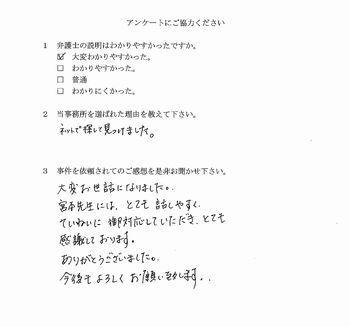 アンケートにご協力ください
1 弁護士の説明はわかりやすかったですか。
☑ 大変わかりやすかった。
☐ わかりやすかった。
☐ 普通
☐ わかりにくかった。
2 当事務所を選ばれた理由を教えて下さい。
ネットで探して見つけました。
3 事件を依頼されてのご感想を是非お聞かせ下さい。
大変お世話になりました。
宮本先生には、とても話しやすく、
ていねいに御対応していただき、とても
感謝しております。
ありがとうございました。
今後もよろしくお願い致します。